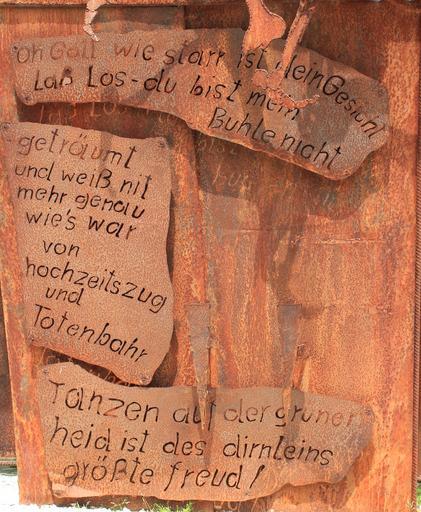 oh Gott wie starr ist dein Gesicht
Laß Los-du bist mein
Buhle nicht
geträumt
und weiß nit
mehr genau
wie's war
von
hochzeitszug
und
Totenbahr
Tanzen auf der grünen
heid ist des dirnleins
größte freud!